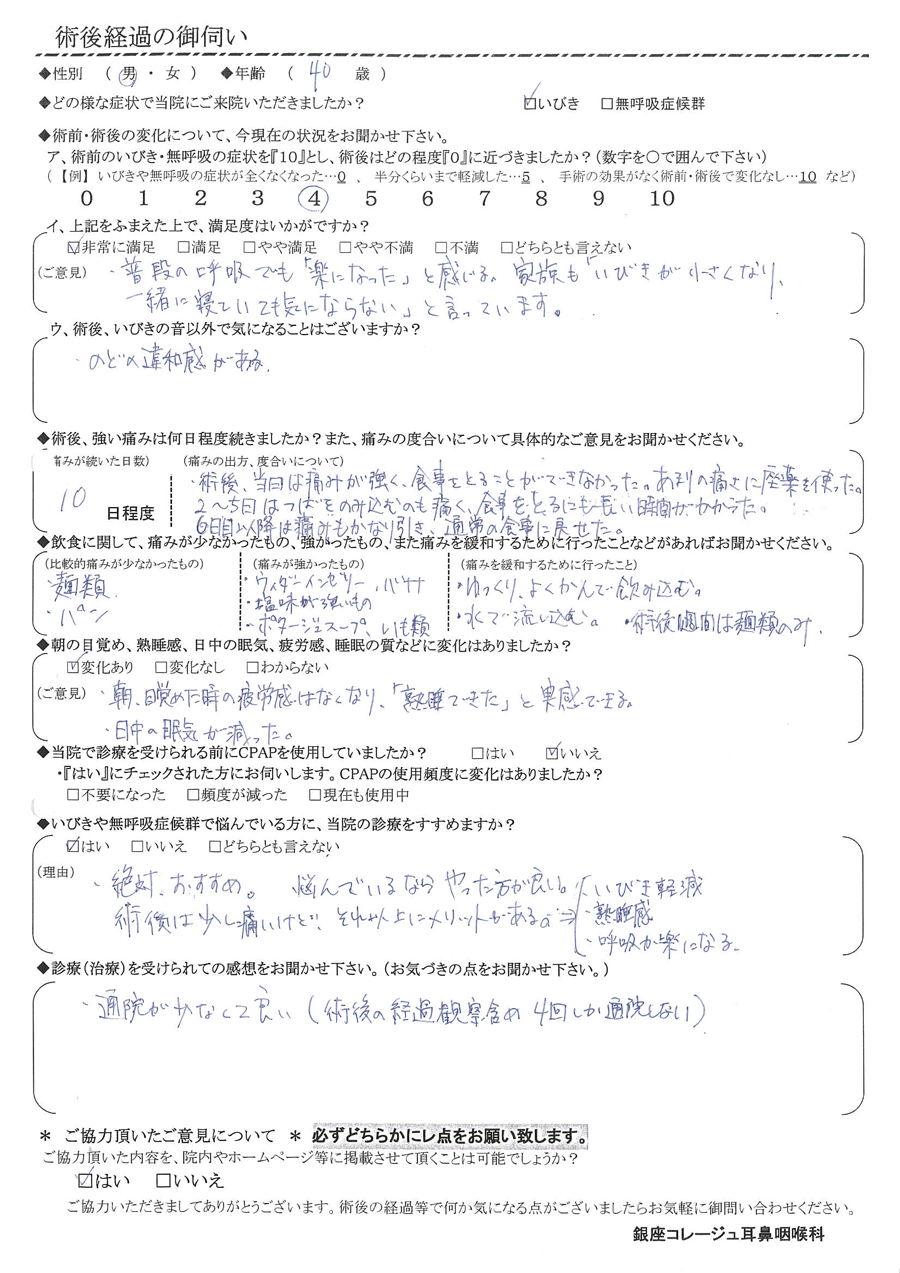 術後経過の御伺い
◆性別 （ 男 ・ 女 ） ◆年齢 （ 40 歳 ）
◆どの様な症状で当院にご来院いただきましたか？ ☑いびき □無呼吸症候群
◆術前・術後の変化について、今現在の状況をお聞かせ下さい。
ア、術前のいびき・無呼吸の症状を『10』とし、術後はどの程度『0』に近づきましたか？（数字を〇で囲んで下さい）
（【例】いびきや無呼吸の症状が全くなくなった…0 、 半分くらいまで軽減した…5 、 手術の効果がなく術前・術後で変化なし…10 など）
0 1 2 3 4 5 6 7 8 9 10
イ、上記をふまえた上で、満足度はいかがですか？
☑非常に満足 □満足 □やや満足 □やや不満 □不満 □どちらとも言えない
（ご意見） ・普段の呼吸でも「楽になった」と感じる。家族も「いびきが小さくなり、
一緒に寝ていても気にならない」と言っています。
ウ、術後、いびきの音以外で気になることはございますか？
・のどの違和感がある。
◆術後、強い痛みは何日程度続きましたか？また、痛みの度合いについて具体的なご意見をお聞かせください。
痛みが続いた日数） （痛みの出方、度合いについて）
10 日程度
・術後、当日は痛みが強く、食事をとることができなかった。あまりの痛さに座薬を使った。
2～5日はつばをのみ込むのも痛く、食事をとるにも長い時間がかかった。
6日目以降は痛みもかなり引き、通常の食事に戻せた。
◆飲食に関して、痛みが少なかったもの、強かったもの、また痛みを緩和するために行ったことなどがあればお聞かせください。
（比較的痛みが少なかったもの） （痛みが強かったもの） （痛みを緩和するために行ったこと）
・麺類 ・ウィダーインゼリー、バナナ ・ゆっくり、よくかんで飲み込む。
・パン ・塩味が強いもの ・水で流し込む。 ・術後1週間は麺類のみ。
・ポタージュスープ、いも類
◆朝の目覚め、熟睡感、日中の眠気、疲労感、睡眠の質などに変化はありましたか？
☑変化あり □変化なし □わからない
（ご意見） ・朝、目覚めた時の疲労感はなくなり、「熟睡できた」と実感できる。
・日中の眠気が減った。
◆当院で診療を受けられる前にCPAPを使用していましたか？ □はい ☑いいえ
・『はい』にチェックされた方にお伺いします。CPAPの使用頻度に変化はありましたか？
□不要になった □頻度が減った □現在も使用中
◆いびきや無呼吸症候群で悩んでいる方に、当院の診療をすすめますか？
☑はい □いいえ □どちらとも言えない
（理由） ・絶対、おすすめ。 悩んでいるならやった方が良い。
術後は少し痛いけど、それ以上にメリットがある。⇒
・いびき軽減
・熟睡感
・呼吸が楽になる。
◆診療（治療）を受けられての感想をお聞かせ下さい。（お気づきの点をお聞かせ下さい。）
・通院が少なくて良い（術後の経過観察含め 4回しか通院しない）
＊ ご協力頂いたご意見について ＊ 必ずどちらかにレ点をお願い致します。
ご協力頂いた内容を、院内やホームページ等に掲載させて頂くことは可能でしょうか？
☑はい □いいえ
ご協力いただきましてありがとうございます。術後の経過等で何か気になる点がございましたらお気軽に御問い合わせください。
銀座コレージュ耳鼻咽喉科